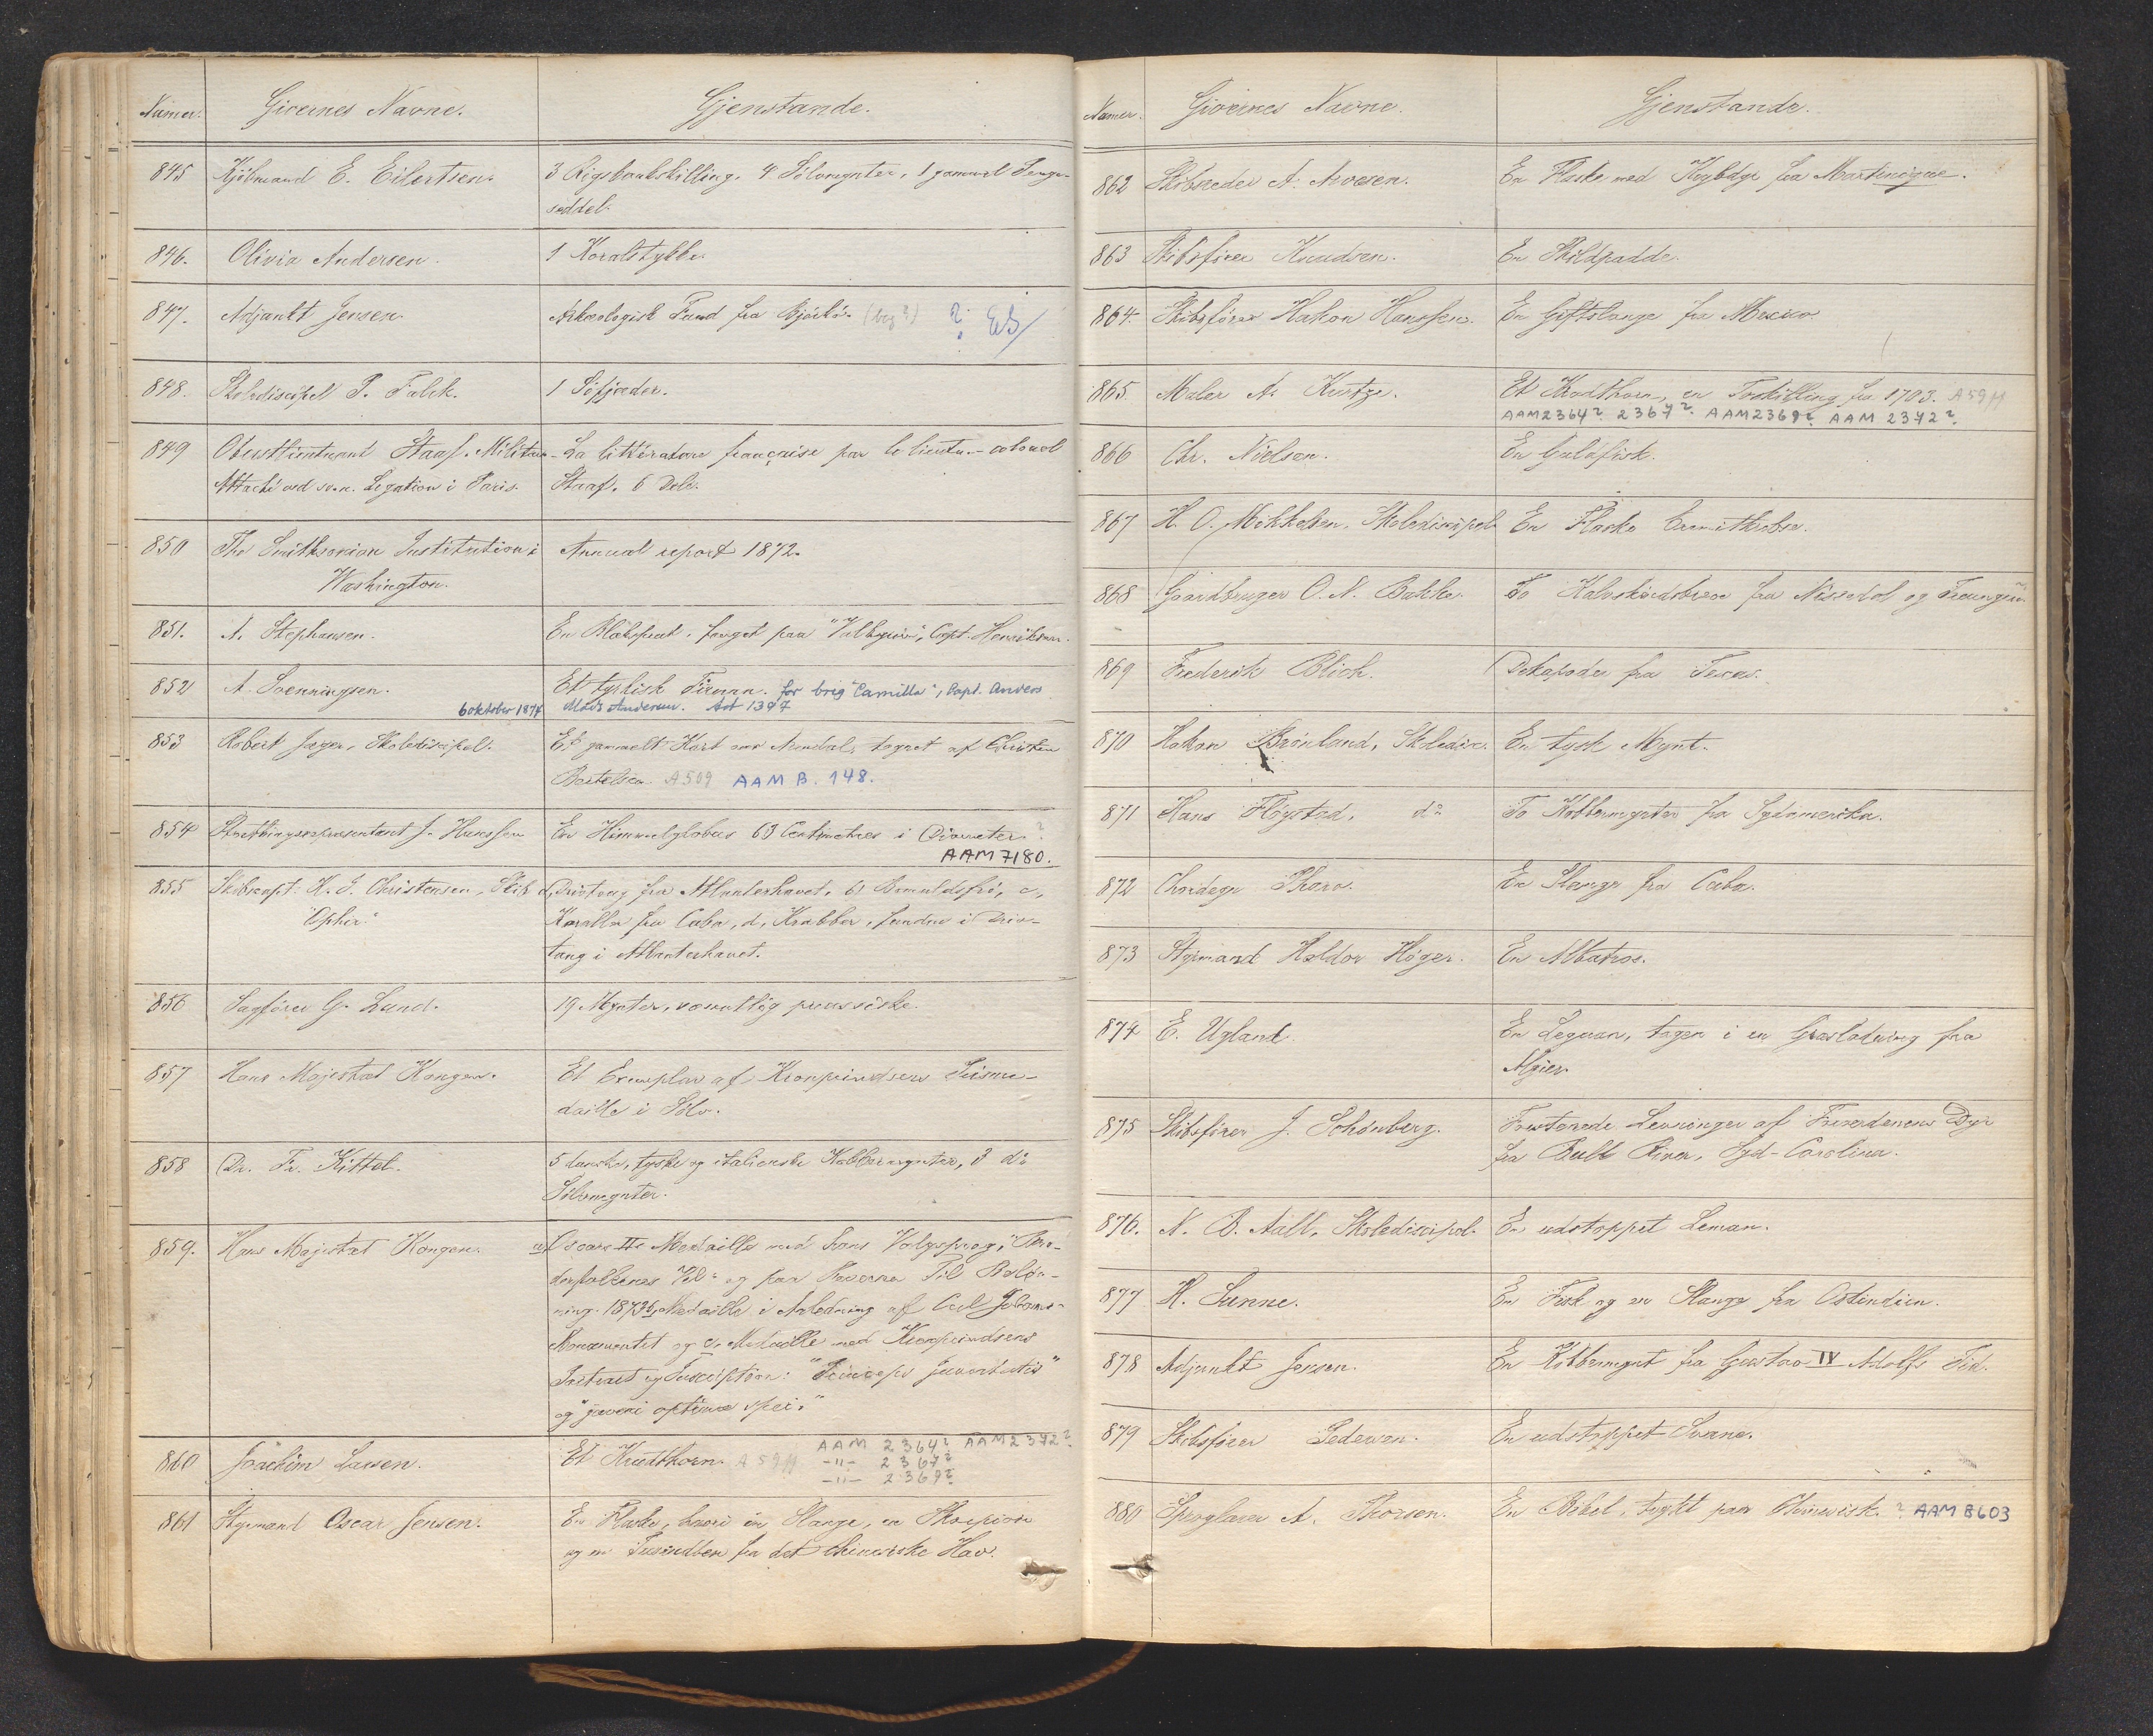 Numer. Givernes Navne. Gjenstande.
845 Kjöbmand E. Eilertsen. 3 Rigsbankskilling. 4 Sölvmynter, 1 gammel Penge-
seddel.
846. Olivia Andersen. 1 Koralstykke.
847. Adjunkt Jensen Arkæologisk Fund fra Björkö.
848. Skolediscipel P. Falck. 1 Söfjæder.
849 Oberstlieutnant Staaf. Militær- La littérature française par le lieutn.-colonel
Attaché ved sv.n. Legation i Paris. Staaf. 6 Dele.
850 The Smithsonian Institution i Annual report 1872.
Washington.
851. A. Stephansen. En Blæksprut, fanget paa "Valkyrien", Capt. Henriksen.
852 A. Svenningsen. Et tyrkisk Firman. for brig "Camilla", Capt. Anders
6 oktober 1874 Mads Andersen. Ad 1397
853 Robert Jæger, Skolediscipel. Et gammelt Kart over Arendal, tegnet af Christen
Bertelsen. A509 AAM B. 148.
854 Storthingsrepræsentant J. Hanssen En Himmelglobus 63 Centimetres i Diameter ?
AAM 7180.
855 Skibscapt. H. J. Christensen, Skib Drivtang fra Atlanterhavet, b,
"Ophir." Koraller fra Cuba, d, Krabber, fundne i Driv-
tang i Atlanterhavet.
856 Sagförer G. Lund. 19 Mynter, væsentlig preussiske.
857 Hans Majestæt Kongen. Et Exemplar af Kronprindsens Prisme-
daille i Sölv.
858 Dr. Fr. Kittel. 5 danske, tyske og italienske Kobbermynter, 3 do
Sölvmynter.
859. Hans Majestæt Kongen. a, Oscars IIs Medaille med hans Valgsprog, "Brö-
derfolkenes Vel" og paa Reversen Til Belön-
ning. 1873 b, Medaille i Anledning af Carl Johans-
Monumentet og c, Medaille med Kronprindsens
Portræt og Inscription: "Princeps juventutis"
og "juveni optimæ spei."
860 Joachim Lassen. Et Krudthorn. A 59 AAM 2364? AAM 2372?
-"- 2367?
-"- 2369?
861 Styrmand Oscar Jensen. En Flaske, hvori en Slange, en Skorpion
og en Tusindben fra det chinesiske Hav.
Numer. Givernes Navne. Gjenstande.
862 Skibsreder A. Arvesen. En Flaske med Krybdyr fra Martinique.
863 Skibsförer Knudsen. En Skildpadde.
864. Skibsförer Hakon Hanssen. En Giftslange fra Mexico.
865. Maler A. Kintze. Et Krudthorn, en Toskilling fra 1703. A 59
AAM 2364? 2367? AAM 2369? AAM 2372?
866 Chr. Nielsen. En Guldfisk.
867 H. O. Mikkelsen, Skolediscipel En Flaske Eremitkrebse.
868 Gaardbruger O. N. Bakke. To Kalveskindsbreve fra Nissedal og Treungen.
869 Frederik Blich. Dekapoder fra Texas.
870 Hakon Brönlund, Skoledisc. En tysk Mynt.
871 Hans Flöystad, do To Kobbermynter fra Sydamerika.
872 Thore. En Slange fra Cuba.
873 Styrmand Haldor Höger. En Albatros.
874 E. Ugland En Leguan, tagen i en Græsladning fra
Algier.
875 Skibsförer J. Schönberg. Forstenede Levninger af Dyr
fra Bull River, Syd-Carolina.
876. N. B. Aall, Skolediscipel. En udstoppet Leman.
877 H. Sunne. En Fisk og en Slange fra Ostindien.
878 Adjunkt Jensen. En Kobbermynt fra Gustav IV Adolfs Tid.
879 Skibsförer Pedersen. En udstoppet Svane.
880 Sproglærer A. Thorsen. En Bibel, trykt paa Chinesisk. ? AAM B603